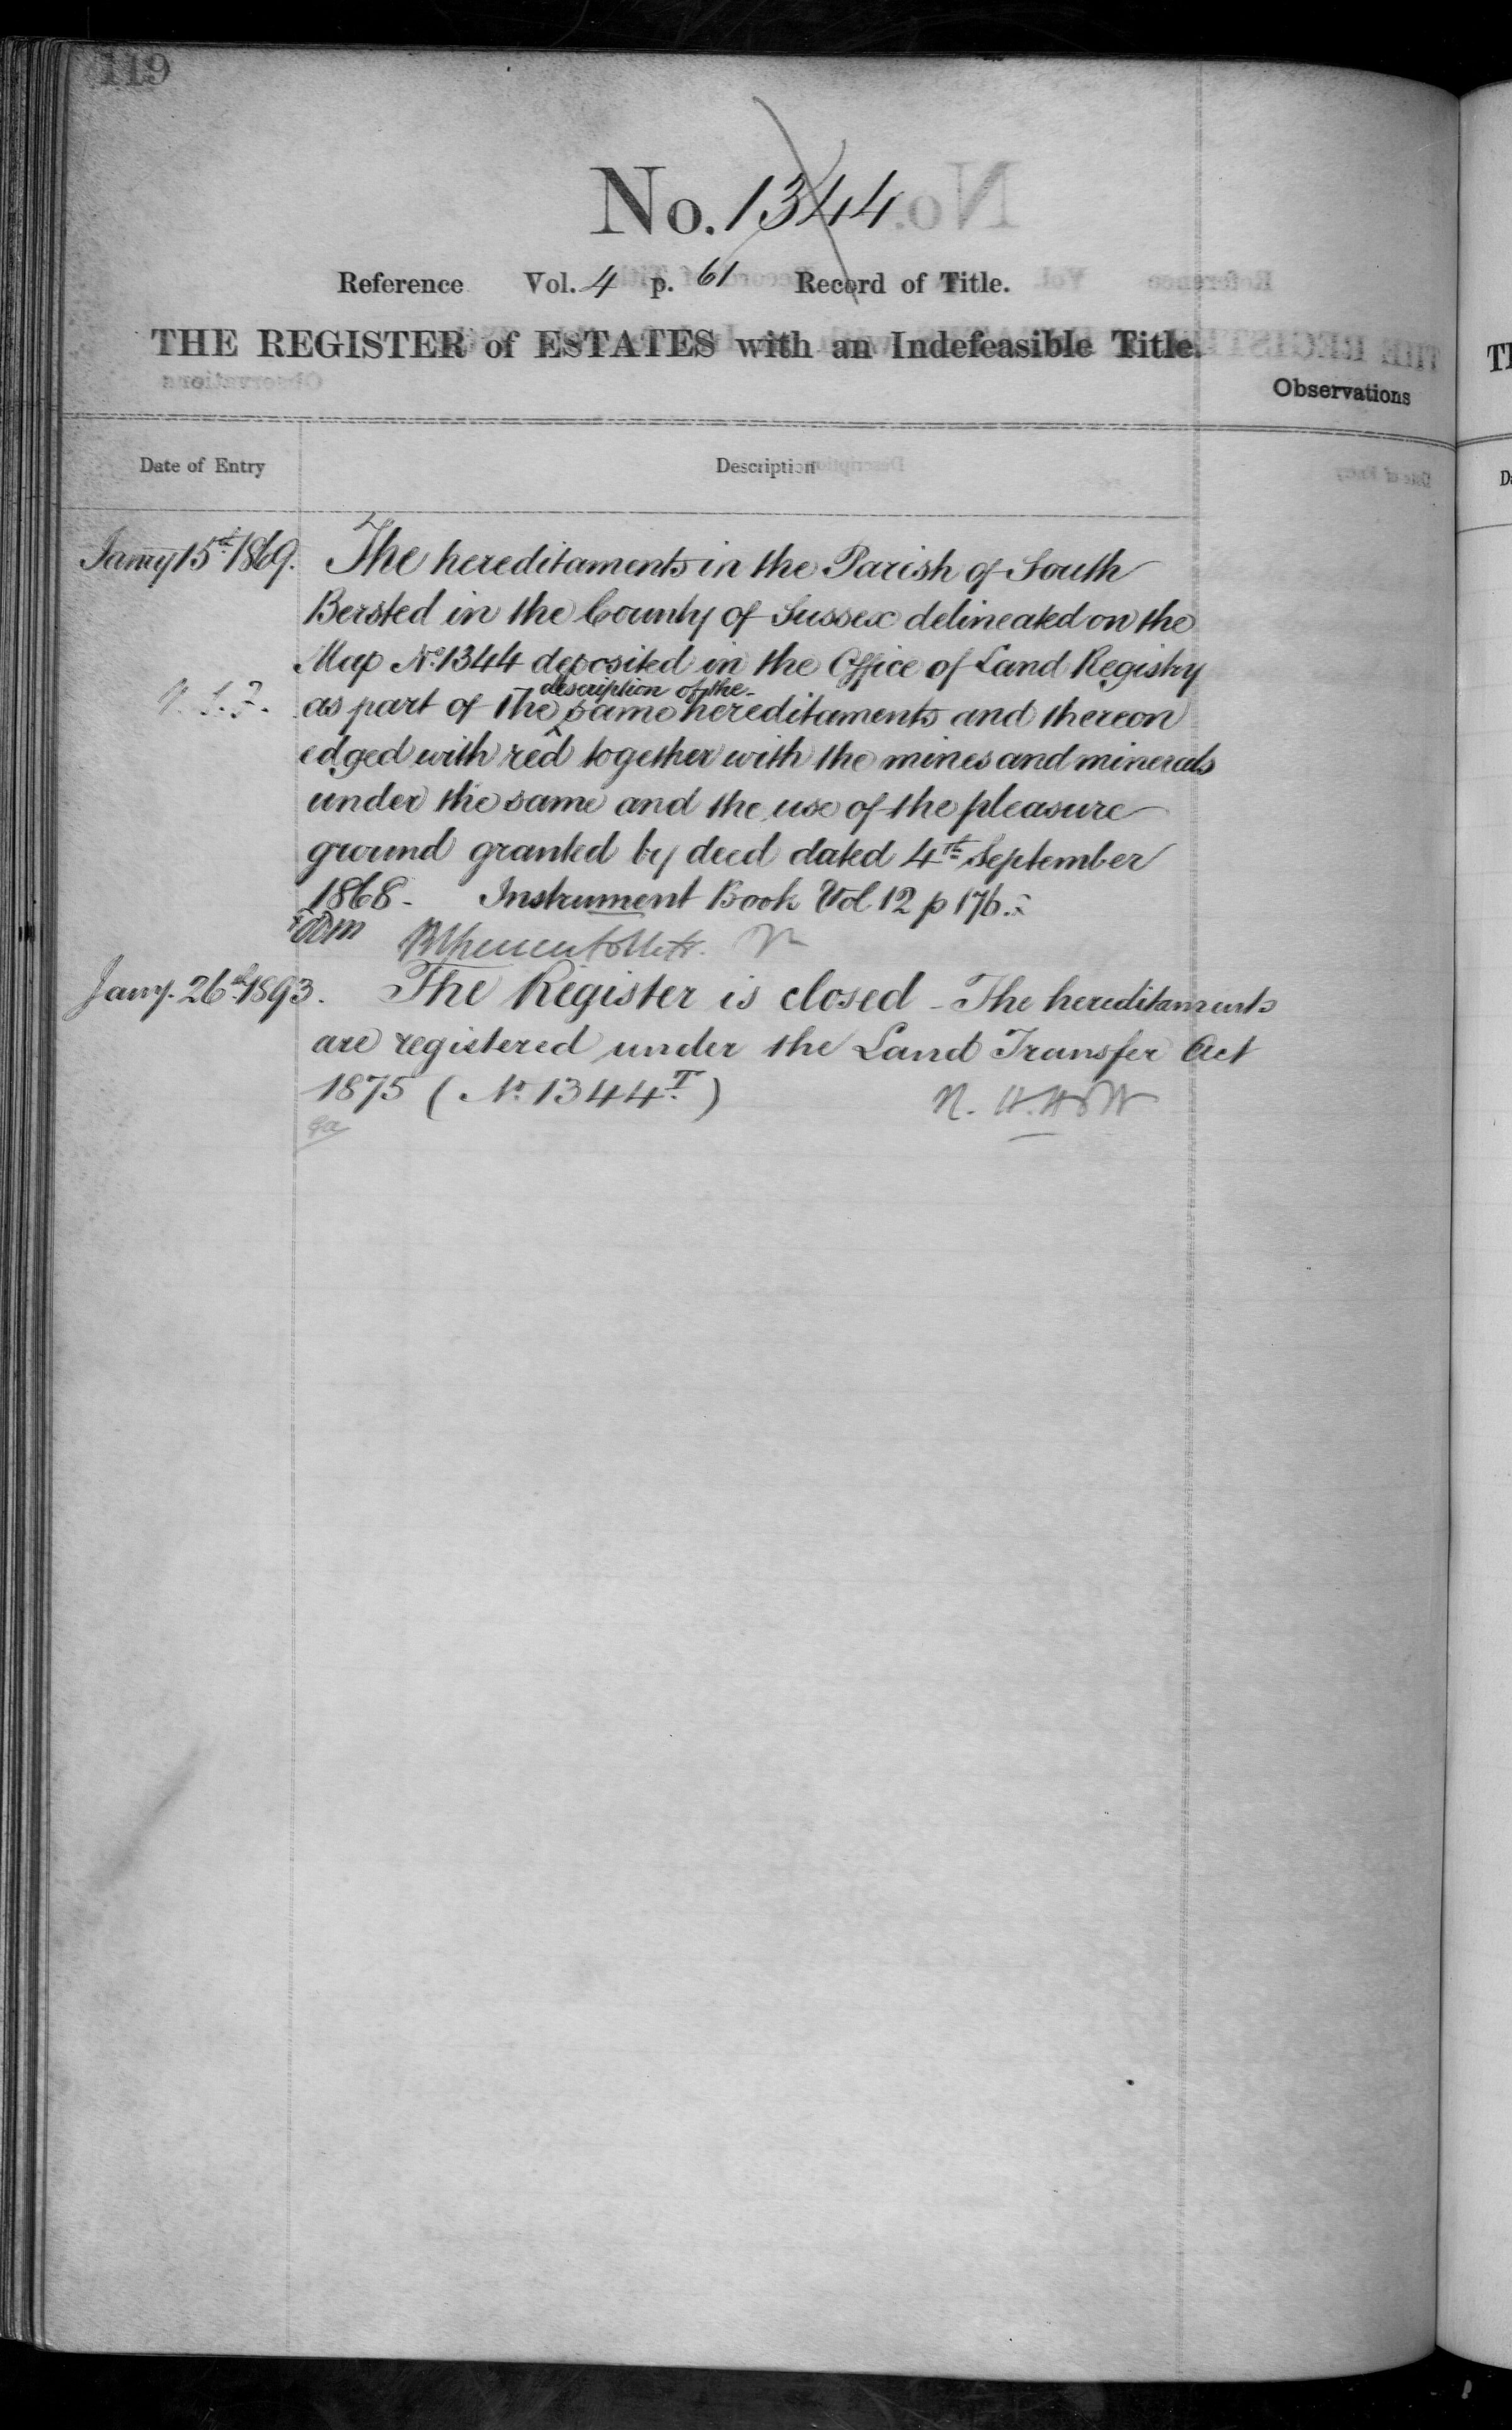 119
No. 1344
Reference Vol. 4 p. 61 Record of Title.
THE REGISTER of ESTATES with an Indefeasible Title.
Observations
Date of Entry Description
Jany 15th 1869. The hereditaments in the Parish of South
Bersted in the County of Sussex delineated on the
Map No. 1344 deposited in the Office of Land Registry
description of the
as part of the same hereditaments and thereon
edged with red together with the mines and minerals
under the same and the use of the pleasure
ground granted by deed dated 4th September
1868 - Instrument Book Vol 12 p 176.
Jany. 26th 1893. The Register is closed - The hereditaments
are registered under the Land Transfer Act
1875 (No. 1344T.)